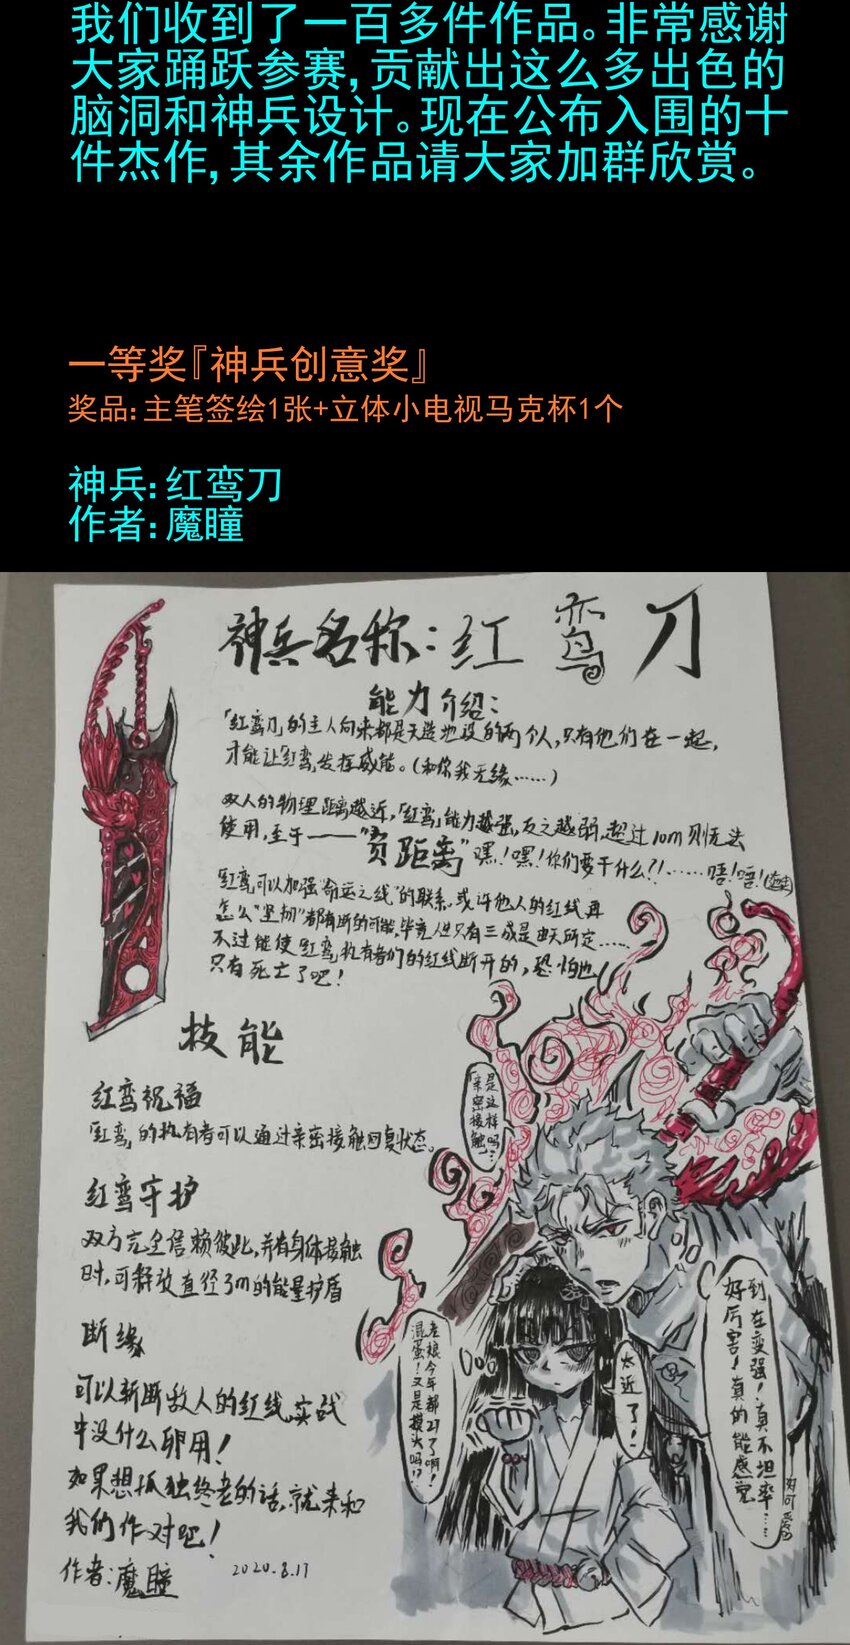 我们收到了一百多件作品。非常感谢
大家踊跃参赛,贡献出这么多出色的
脑洞和神兵设计。现在公布入围的十
件杰作,其余作品请大家加群欣赏。
一等奖『神兵创意奖』
奖品:主笔签绘1张+立体小电视马克杯1个
神兵:红鸾刀
作者:魔瞳
神兵名称:红鸾刀
能力介绍:
「红鸾刀」的主人向来都是天造地设的两个人,只有他们在一起,
才能让「红鸾」发挥威能。(和你我无缘……)
双人的物理距离越近,「红鸾」能力越强,反之越弱,超过10m则无法
使用,至于——"负距离"嘿!嘿!你们要干什么?!……唔!唔!
「红鸾」可以加强"命运之线"的联系,或许他人的红线再
怎么"坚韧"都有断的可能,毕竟人生只有三成是由天所定……
不过能使「红鸾」执有者们的红线断开的,恐怕也
只有死亡了吧!
技能
红鸾祝福
「红鸾」的执有者可以通过亲密接触回复状态。
红鸾守护
双方完全信赖彼此,并有身体接触
时,可释放直径3m的能量护盾
断缘
可以斩断敌人的红线,实战
中没什么卵用!
如果想孤独终老的话,就来和
我们作对吧!
作者:魔瞳
2020.8.17
是这样吗?
亲密接触…
老娘今年都27了啊!!
混蛋!又是摸头吗!?
太近了!
到在变强!真不坦率……
好厉害!真的能感觉
可爱